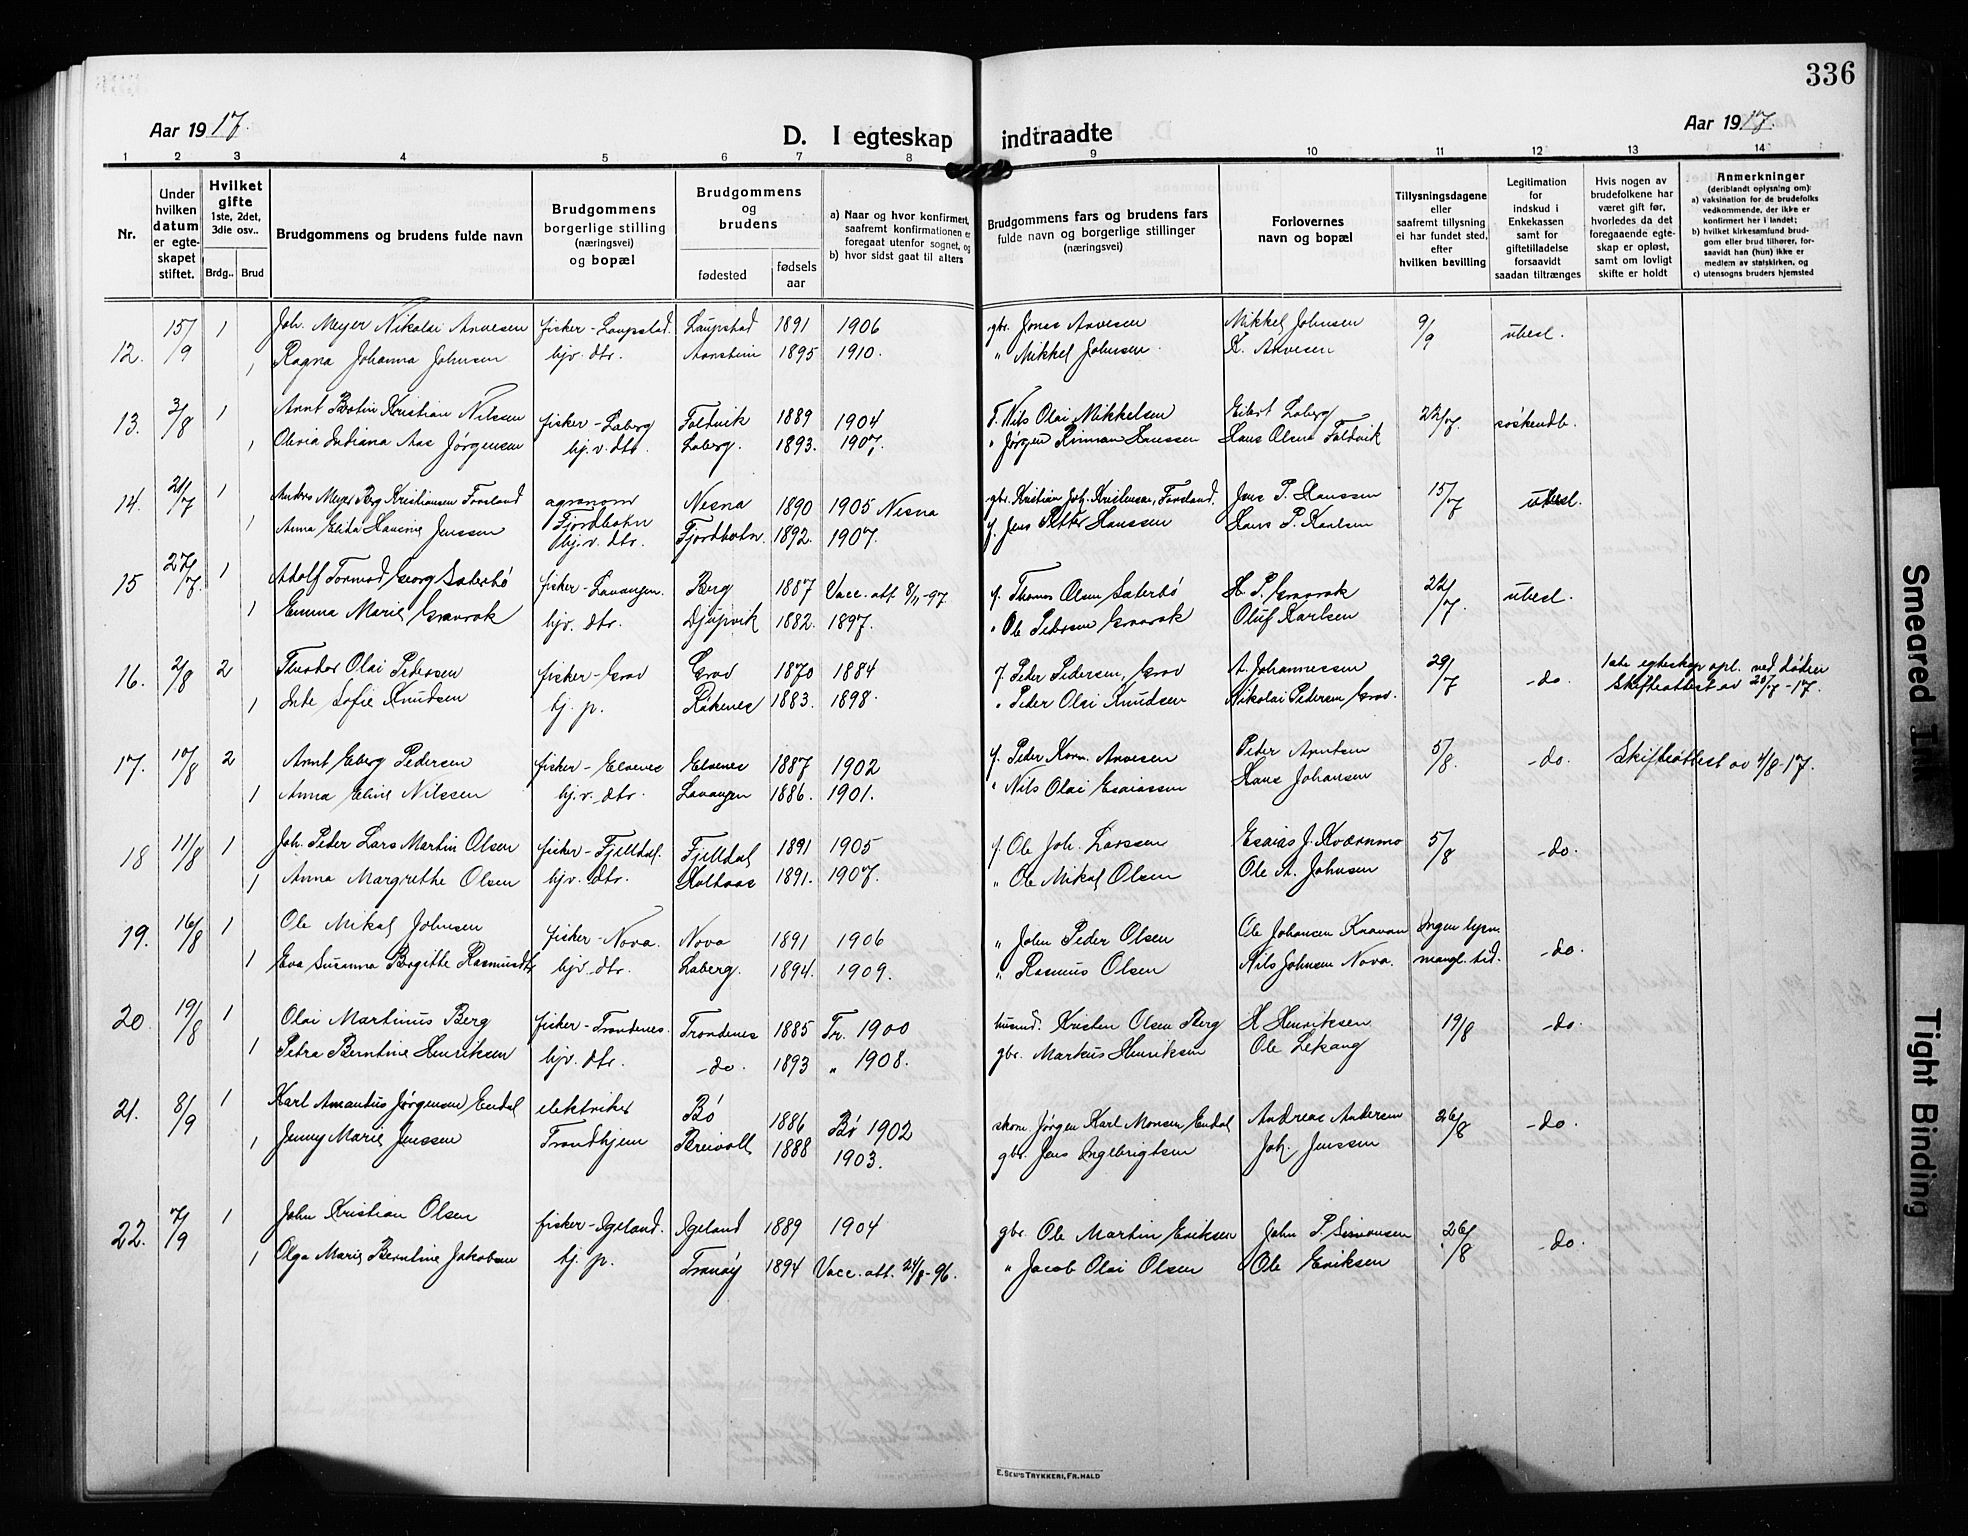 336
Aar 1917.
D. I egteskap indtraadte
Aar 1917.
1 2 3 4 5 6 7 8 9 10 11 12 13 14
Nr.
Under hvilken datum er egteskapet stiftet.
Hvilket gifte 1ste, 2det, 3die osv..
Brdg.. Brud
Brudgommens og brudens fulde navn
Brudgommens borgerlige stilling (næringsvei) og bopæl
Brudgommens og brudens
fødested
fødsels aar
a) Naar og hvor konfirmert, saafremt konfirmationen er foregaat utenfor sognet, og
b) hvor sidst gaat til alters
Brudgommens fars og brudens fars fulde navn og borgerlige stillinger (næringsvei)
Forlovernes navn og bopæl
Tillysningsdagene eller saafremt tillysning ei har fundet sted, efter hvilken bevilling
Legitimation for indskud i Enkekassen samt for giftetilladelse forsaavidt saadan tiltrænges
Hvis nogen av brudefolkene har været gift før, hvorledes da det foregaaende egteskap er opløst, samt om lovligt skifte er holdt
Anmerkninger (deriblandt oplysning om):
a) vaksination for de brudefolks vedkommende, der ikke er konfirmert her i landet;
b) hvilket kirkesamfund brudgom eller brud tilhører, forsaavidt han (hun) ikke er medlem av statskirken, og
c) utensogns bruders hjemsted
12. 15/9 1 Joh. Meyer Nikolai Arvesen fisker - Laupstad. Laupstad 1891 1906 gbr. Jonas Arvesen Mikkel Johnsen 9/9 ubesl.
1 Ragna Johanna Johnsen hjv. dtr. Aarstein 1895 1910. " Mikkel Johnsen K. Arvesen
13. 3/8 1 Arnt Botin Kristian Nilssen fisker - Laberg Foldvik 1889 1904 f. Nils Olai Mikkelsen Eilert Laberg 22/7. søskendb.
1 Olevia Indiana Aas Jørgensen hj. v. dtr. Laberg. 1893. 1907. " Jørgen Hansen Hans Olsen Foldvik
14. 21/7 1 Andres Meyer Berg Kristiansen Forsland agronom Fjordbotn Nesna 1890 1905 Nesna gbr. Kristian Joh. Kristensen, Forsland. Jens P. Hanssen 15/7 ubesl.
1 Anna Elida Jenssen hj. v. dtr. Fjordbotn. 1892. 1907. f. Jens Petter Hanssen Hans P. Karlsen
15 27/7. 1 Adolf Tormod Georg Sæterbø fisker - Lavangen. Berg 1887 Vacc. att. 8/11-97 f. Thomas Olsen Sæterbø H. P. Gravrok 22/7. ubesl.
1 Emma Marie Gravrok hjv. dtr. Djupvik 1882. 1897. " Ole Pedersen Gravrok Oluf Karlsen
16. 2/8 2 Theodor Olai Pedersen fisker - Grov Grov 1870 1884 f. Peder Pedersen, Grov A. Johannessen 29/7 - do. 1ste egteskap opl. ved døden
1 Inte Sofie Knudsen hj. p. Rakenes 1883. 1898. " Peder Olai Knudsen Nikolai Pedersen Grov. Skifteattest av 28/7-17.
17. 10/8 2 Arnt Eberg Pedersen fisker - Elvenes Elvenes 1887 1902 f. Peder Korn. Arvesen Peter Arntsen 5/8. - do. Skifteattest av 4/8-17.
1 Anna Eline Nilssen hj. v. dtr. Lavangen 1886. 1901. " Nils Olai Esaiassen Hans Johansen
18 11/8 1 Joh. Peder Lars Martin Olsen fisker - Fjelldal. Fjelldal 1891 1905 f. Ole Joh. Larssen Esaias J. Kværnmo 5/8 - do.
1 Anna Margrethe Olsen hjv. dtr. Kolhaas 1891. 1907. " Ole Mikal Olsen Ole A. Johnsen
19. 16/8 1 Ole Mikal Johnsen fisker - Nova. Nova 1891 1906 " John Peder Olsen Ole Johansen Ingen lysn. - do.
1 Eva Susanna Birgitte Rasmusdtr hjv. dtr. Laberg. 1894. 1909. " Rasmus Olsen Nils Johnsen Nova. mangl. tid.
20. 19/8 1 Olai Martinus Berg fisker - Trondenes. Trondenes 1885 Tr. 1900 husmd. Kristen Olsen Berg H Henriksen 19/8 - do.
1 Petra Berntine Henriksen hjv. dtr. - do. 1893 " 1908. gbr. Markus Henriksen Ole Lekang
21. 8/9 1 Karl Amandus Jørgensen Endal elektriker Bø 1886 Bø 1902 skom. Jørgen Karl Monsen Endal Andreas Andersen 26/8 - do.
1 Jenny Marie Jenssen Trondhjem Breivoll 1888 1903. gbr. Jens Ingebrigtsen Joh. Jenssen
22. 7/9 1 John Kristian Olsen fisker - Igeland. Igeland 1889 1904 gbr. Ole Martin Eriksen John P. Simonsen 26/8 - do.
1 Olga Marie Berntine Jakobsen hj. p. Tranøy 1894 Vacc. att. 24/8-96. " Jacob Olai Olsen Ole Eriksen
E. SEM'S TRYKKERI, FR.HALD
Smeared Ink
Tight Binding